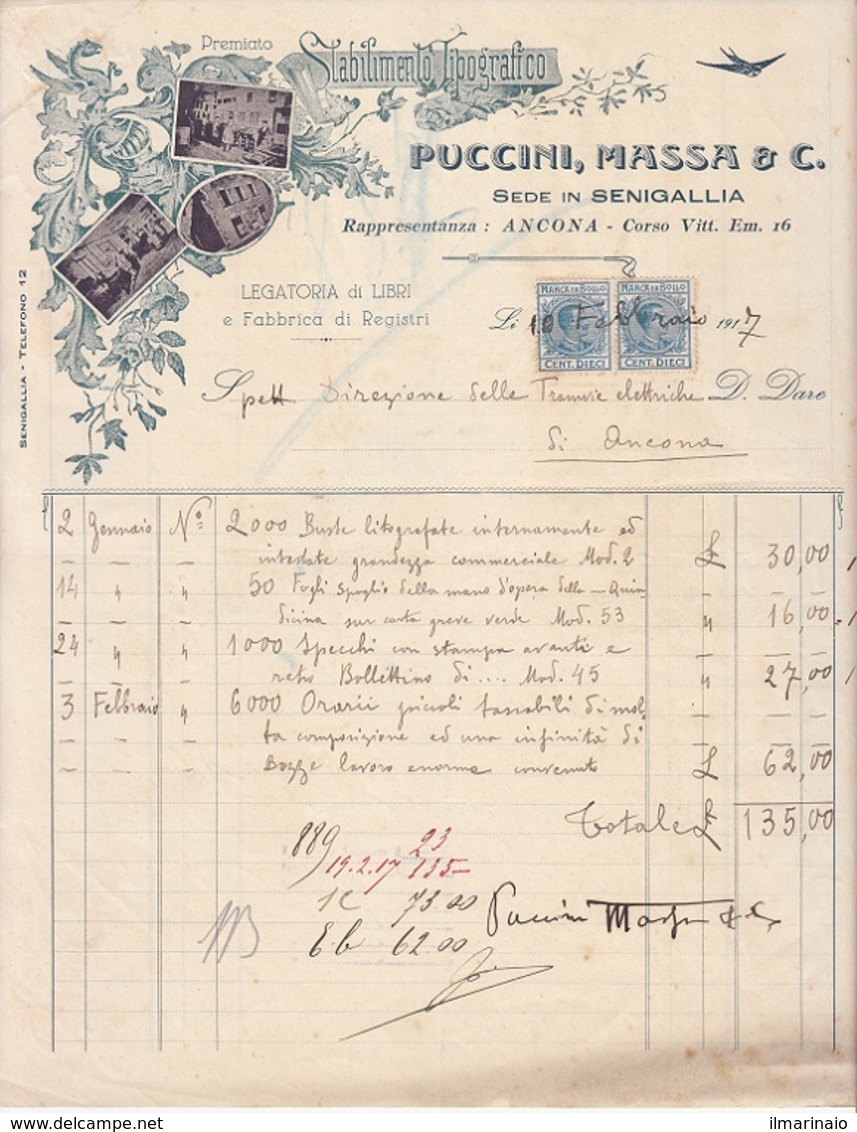 Premiato
Stabilimento Tipografico
PUCCINI, MASSA & C.
SEDE IN SENIGALLIA
Rappresentanza : ANCONA - Corso Vitt. Em. 16
LEGATORIA di LIBRI
e Fabbrica di Registri
SENIGALLIA - TELEFONO 12
MARCA DA BOLLO MARCA DA BOLLO
Li 10 Febbraio 1917
CENT. DIECI CENT. DIECI
Spett Direzione delle Tramvie elettriche D. Dare
di Ancona
2 Gennaio Nº 2000 Buste litografate internamente ed
intestate grandezza commerciale Mod. 2 £ 30,00
14 " " 50 Fogli spoglio della mano d'opera della Quin
dicina su carta greve verde Mod. 53 " 16,00
24 " " 1000 Specchi con stampa avanti e
retro Bollettino di .... Mod. 45 " 27,00
3 Febbraio " 6000 Orarii piccoli tascabili di mol
ta composizione ed una infinità di
Bozze lavoro enorme convenuto £ 62,00
Totale £ 135,00
889 23
19.2.17 135-
1C 73.00
Puccini Massa & C.
E.b 62.00
delcampe.net
ilmarinaio